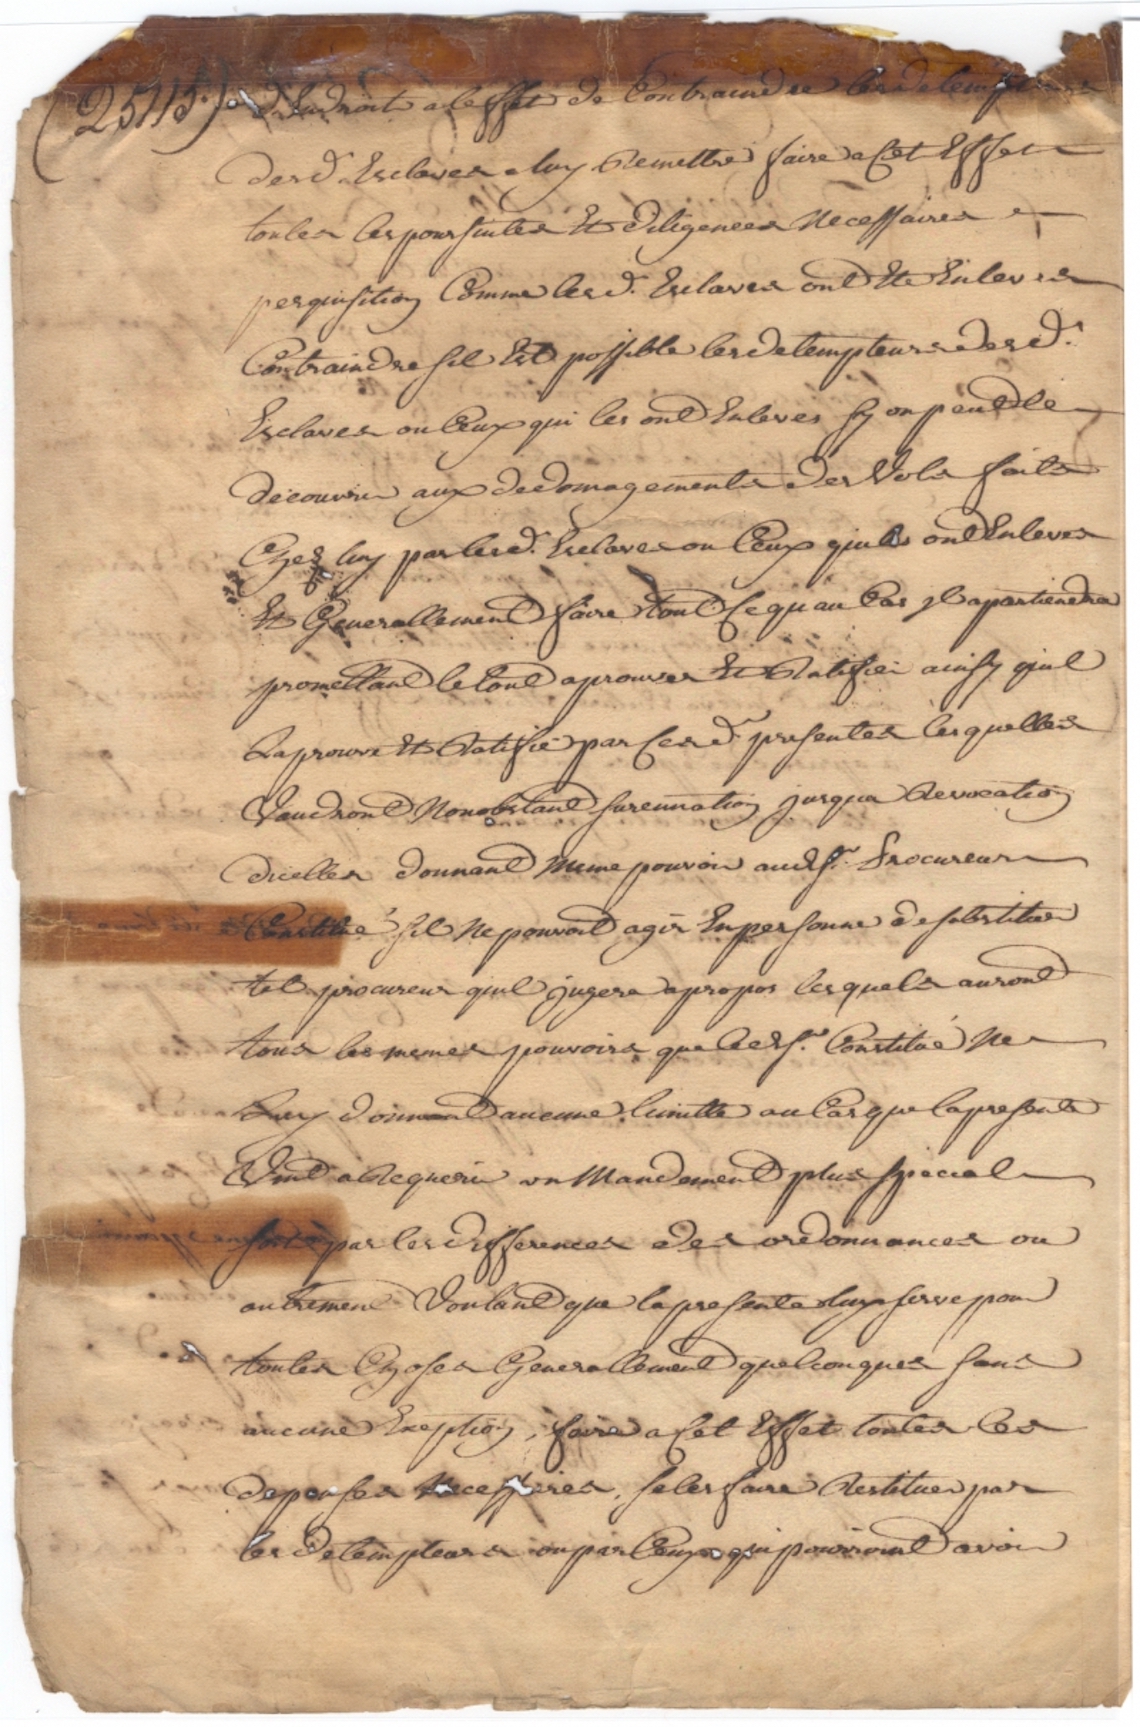 (25115) d'Endroit a leffet de Contraindre les detempteurs
desd. Esclaves a luy Remettre faire a Cet Effet
toutes les poursuites Et diligences Necessaires
perquisition Comme lesd. Esclaves ont Ete Enleves
Contraindre sil Est possible les detempteurs desd.
Esclaves ou Ceux qui les ont Enleves sy on peut le
decouvrir aux dedomagements des Vols faits
Chez luy par lesd. Esclaves ou Ceux qui les ont Enleves
Et Generallement faire tout Ce qu au Cas yl apartiendra
promettant le tout aprouver Et Ratifier ainsy quil
Laprouve Et Ratifie par Ces d. presentes lesquelles
Vaudront Nonobstant surennation jusqua Revocation
dicelles donnant meme pouvoir aud Sr. Procureur
Constitué sil Ne pouvoit agir En personne de substituer
tel procureur quil jugera apropos lesquels auront
tous les memes pouvoirs que led Sr. Constitué Ne
Luy donnant aucune limitte au Cas que la presente
Vint a Requerir un Mandement plus special
soit par les differences des ordonnances ou
autrement Voulant que la presente luy serve pour
toutes Choses Generallement quelconques sans
aucune Exeption, faire a Cet Effet toutes les
depenses Necessaires, se les faire Restituer par
les detempteurs ou par Ceux qui pourront avoir